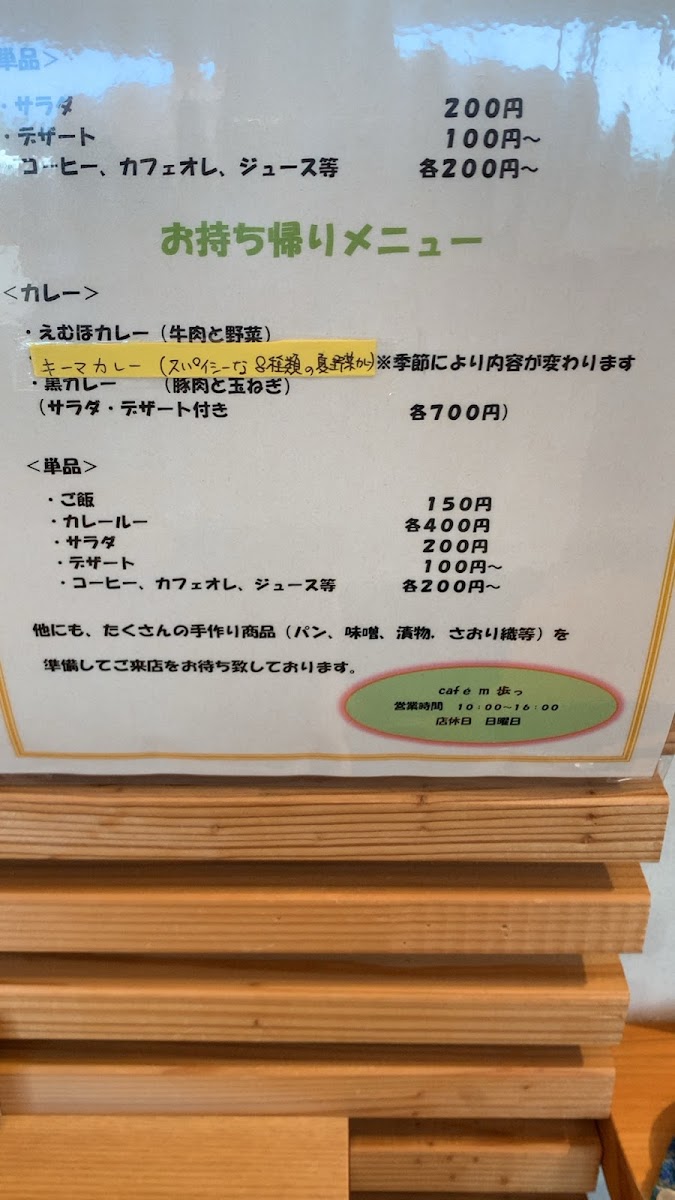 単品＞
・サラダ 200円
・デザート 100円～
コーヒー、カフェオレ、ジュース等 各200円～
お持ち帰りメニュー
＜カレー＞
・えむほカレー（牛肉と野菜）
キーマカレー（スパイシーな8種類の夏野菜カレー） ※季節により内容が変わります
・黒カレー （豚肉と玉ねぎ）
（サラダ・デザート付き 各700円）
＜単品＞
・ご飯 150円
・カレールー 各400円
・サラダ 200円
・デザート 100円～
・コーヒー、カフェオレ、ジュース等 各200円～
他にも、たくさんの手作り商品（パン、味噌、漬物、さおり織等）を
準備してご来店をお待ち致しております。
café m 歩っ
営業時間 10：00～16：00
店休日 日曜日